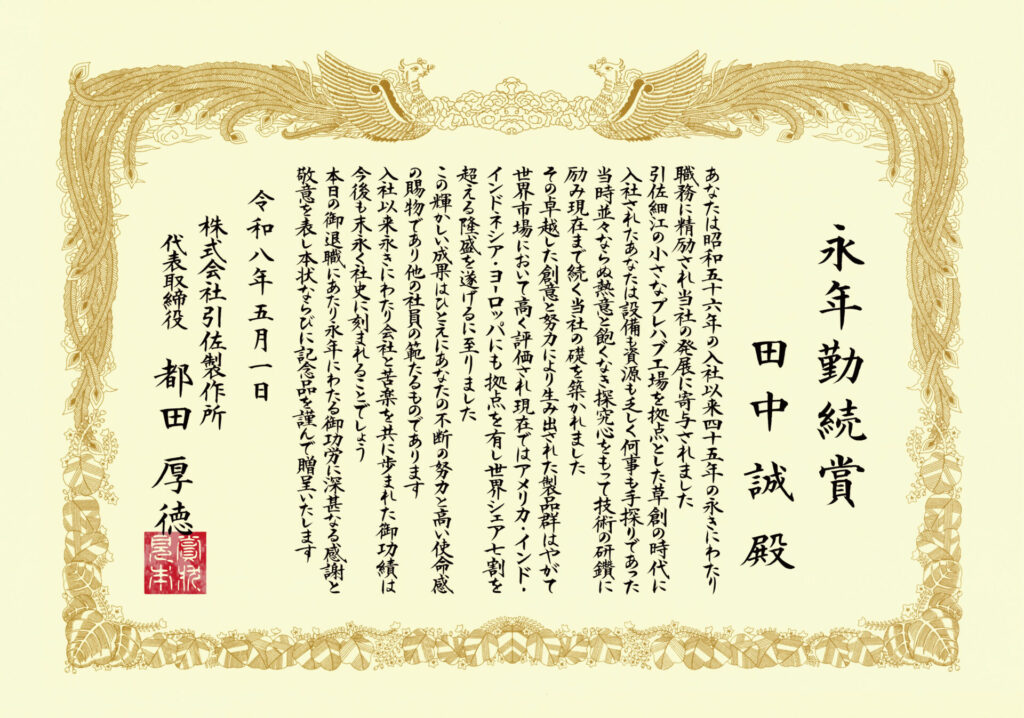 永年勤続賞
田中 誠 殿
あなたは昭和五十六年の入社以来四十五年の永きにわたり
職務に精励され当社の発展に寄与されました
引佐細江の小さなプレハブ工場を拠点とした草創の時代に
入社されたあなたは設備も資源も乏しく何事も手探りであった
当時並々ならぬ熱意と飽くなき探究心をもって技術の研鑽に
励み現在まで続く当社の礎を築かれました
その卓越した創意と努力により生み出された製品群はやがて
世界市場において高く評価され現在ではアメリカ・インド・
インドネシア・ヨーロッパにも拠点を有し世界シェア七割を
超える隆盛を遂げるに至りました
この輝かしい成果はひとえにあなたの不断の努力と高い使命感
の賜物であり他の社員の範たるものであります
入社以来永きにわたり会社と苦楽を共に歩まれた御功績は
今後も末永く社史に刻まれることでしょう
本日の御退職にあたり永年にわたる御功労に深甚なる感謝と
敬意を表し本状ならびに記念品を謹んで贈呈いたします
令和八年五月一日
株式会社引佐製作所
代表取締役 都田 厚徳
賞状
見本